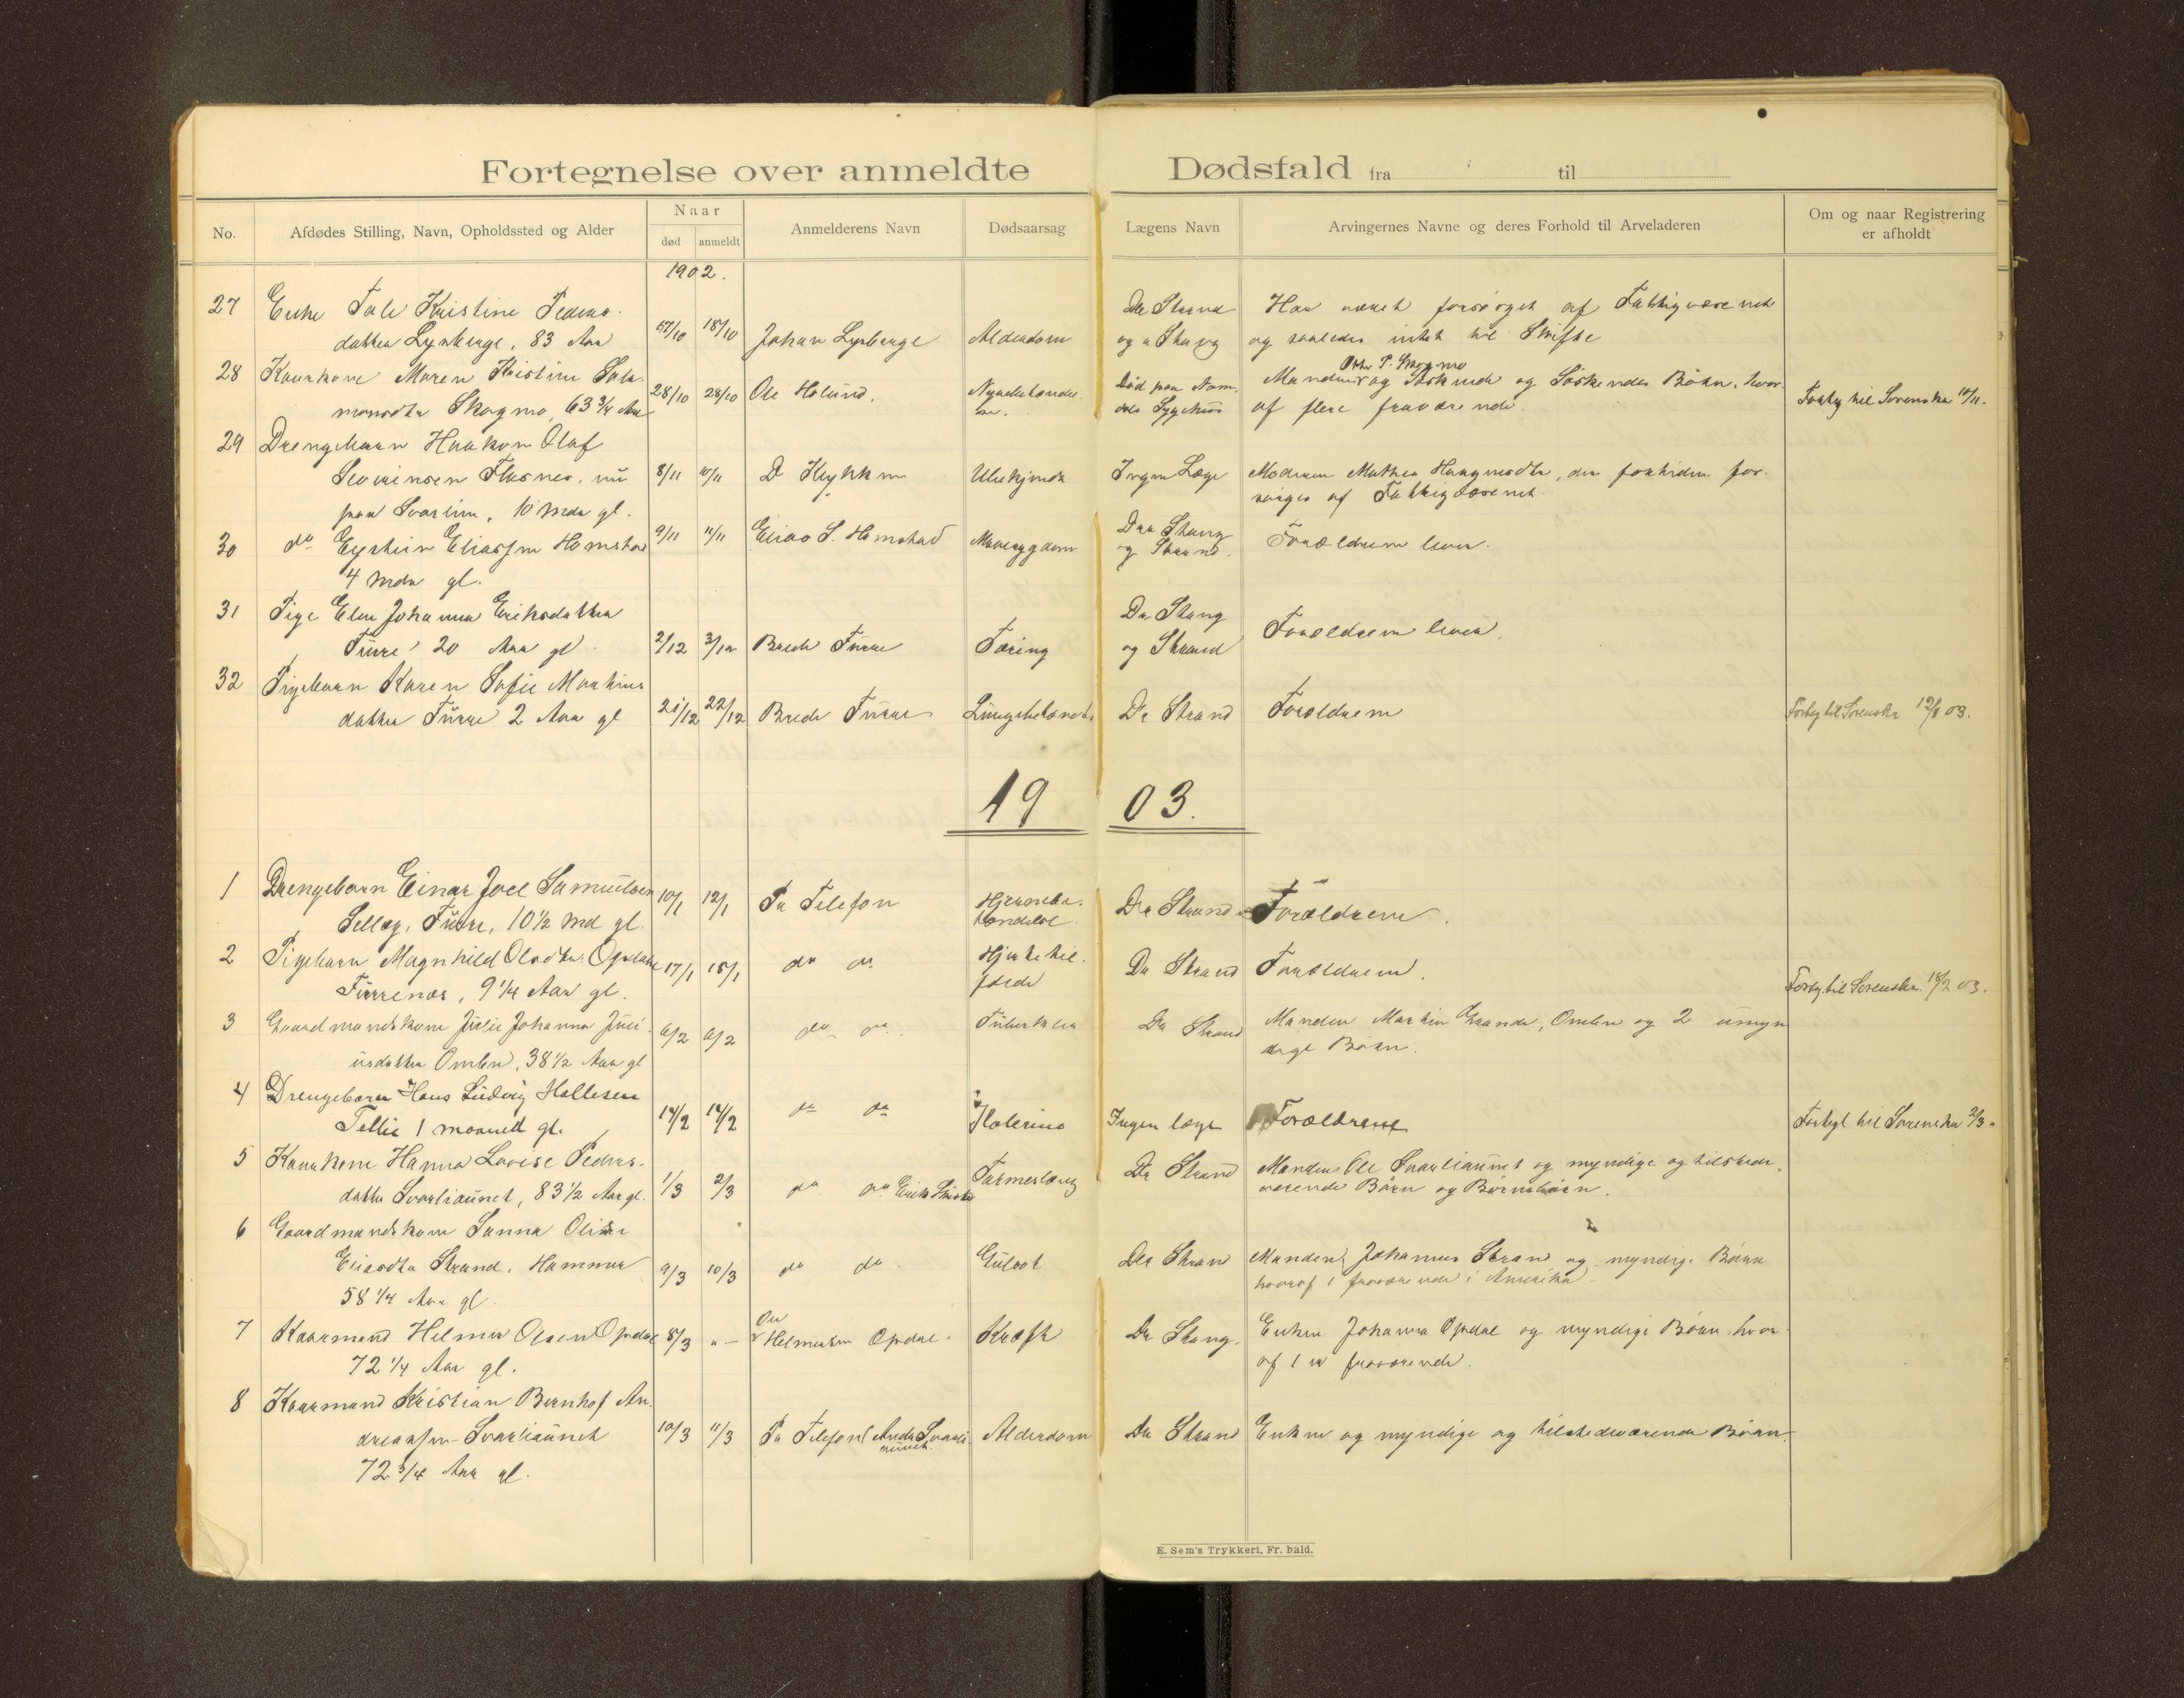 Fortegnelse over anmeldte Dødsfald fra til
No.
Afdødes Stilling, Navn, Opholdssted og Alder
Naar
død
anmeldt
Anmelderens Navn
Dødsaarsag
Lægens Navn
Arvingernes Navne og deres Forhold til Arveladeren
Om og naar Registrering
er afholdt
1902.
27 Enke Tale Kristine Peders-
datter 83 Aar 18/10 Johan Alderdom
Dr Strand
og Stang
Har været forsørget af Fattigvæsenet
og saaledes intet til Skifte
28 Kaarkone Maren Kristine Salo-
monsdtr Skogmo 63 3/4 Aar 28/10 28/10 Ole Hølund.
Død paa Nam.
dals Sygehus
P. Skogmo
Manden og Søskende og Søskendes Børn, hvor-
af flere fraværende
til Sorenskr 15/11.
29 Drengebarn Haakon Olaf
Flasnes, nu 8/11 10/11
paa Svarlien, 10 Mdr gl.
Ingen Læge
Moderen Mathea, der forhiden for-
sørges af Fattigvæsenet.
30 do Eystein Eliassen Homstad 9/11 11/11 Elias S. Homstad
4 Mdr gl.
Dr Stang
og Strand.
Forældrene lever.
31 Pige Elen Johanna Eriksdatter
Furre 20 Aar gl 2/12 3/12 Brede Furre Tæring
Dr Stang
og Strand
Forældrene lever.
32 Pigebarn Karen Sofie Martins
datter Furre 2 Aar gl 21/12 22/12 Brede Furre
Dr Strand
Forældrene
til Sorenskr 03.
1903.
1 Drengebarn Einar Joel Samuelsen
Furre, 10 1/2 Md gl. 10/1 12/1 Pr Telefon
Dr Strand
Forældrene.
2 Pigebarn Magnhild Olsdtr. Opdal
Furrenes, 9 1/4 Aar gl. 17/1 18/1 do do
Dr Strand
Forældrene.
til Sorenskr. 18/2 03.
3 Gaardmandskone Julie Johanna Juli-
usdatter Omlen, 38 1/2 Aar gl 6/2 6/2 do do Tuberkler
Dr Strand
Manden Martin, Omlen og 2 umyn
dige Børn.
4 Drengebarn Hans Ludvig Hallesen
Tellie 1 maaned gl. 14/2 14/2 do do
Ingen læge
Forældrene
til Sorenskr 2/3.
5 Kaarkone Hanna Lovise Peders-
datter Svarliaunet, 83 1/2 Aar gl. 1/3 2/3 do do Tarmeslyng
Dr Strand
Manden Ole Svarliaunet og myndige og tilstede-
værende Børn og Børnebørn.
6 Gaardmandskone Sanna Oline
Eliasdtr Strand, Hammer 9/3 10/3 do do. Gulsot
58 1/4 Aar gl.
Manden Johannes og 2 myndig. Børn
hvoraf 1 fraværende i Amerika.
7 Kaarmand Helmer Olsen Opdal 8/3 " — Helmersen Opdal. Kræft
72 1/4 Aar gl.
Dr Stang.
Enken Johanna Opdal og myndige Børn hvor-
af 1 er fraværende.
8 Kaarmand Kristian Bernhof An-
dreassen Svarliaunet 10/3 11/3 Pr Telefon Alderdom
72 3/4 Aar gl.
Dr Strand
Enken og myndige og tilstedeværende Børn.
E. Sem's Trykkeri, Fr. hald.